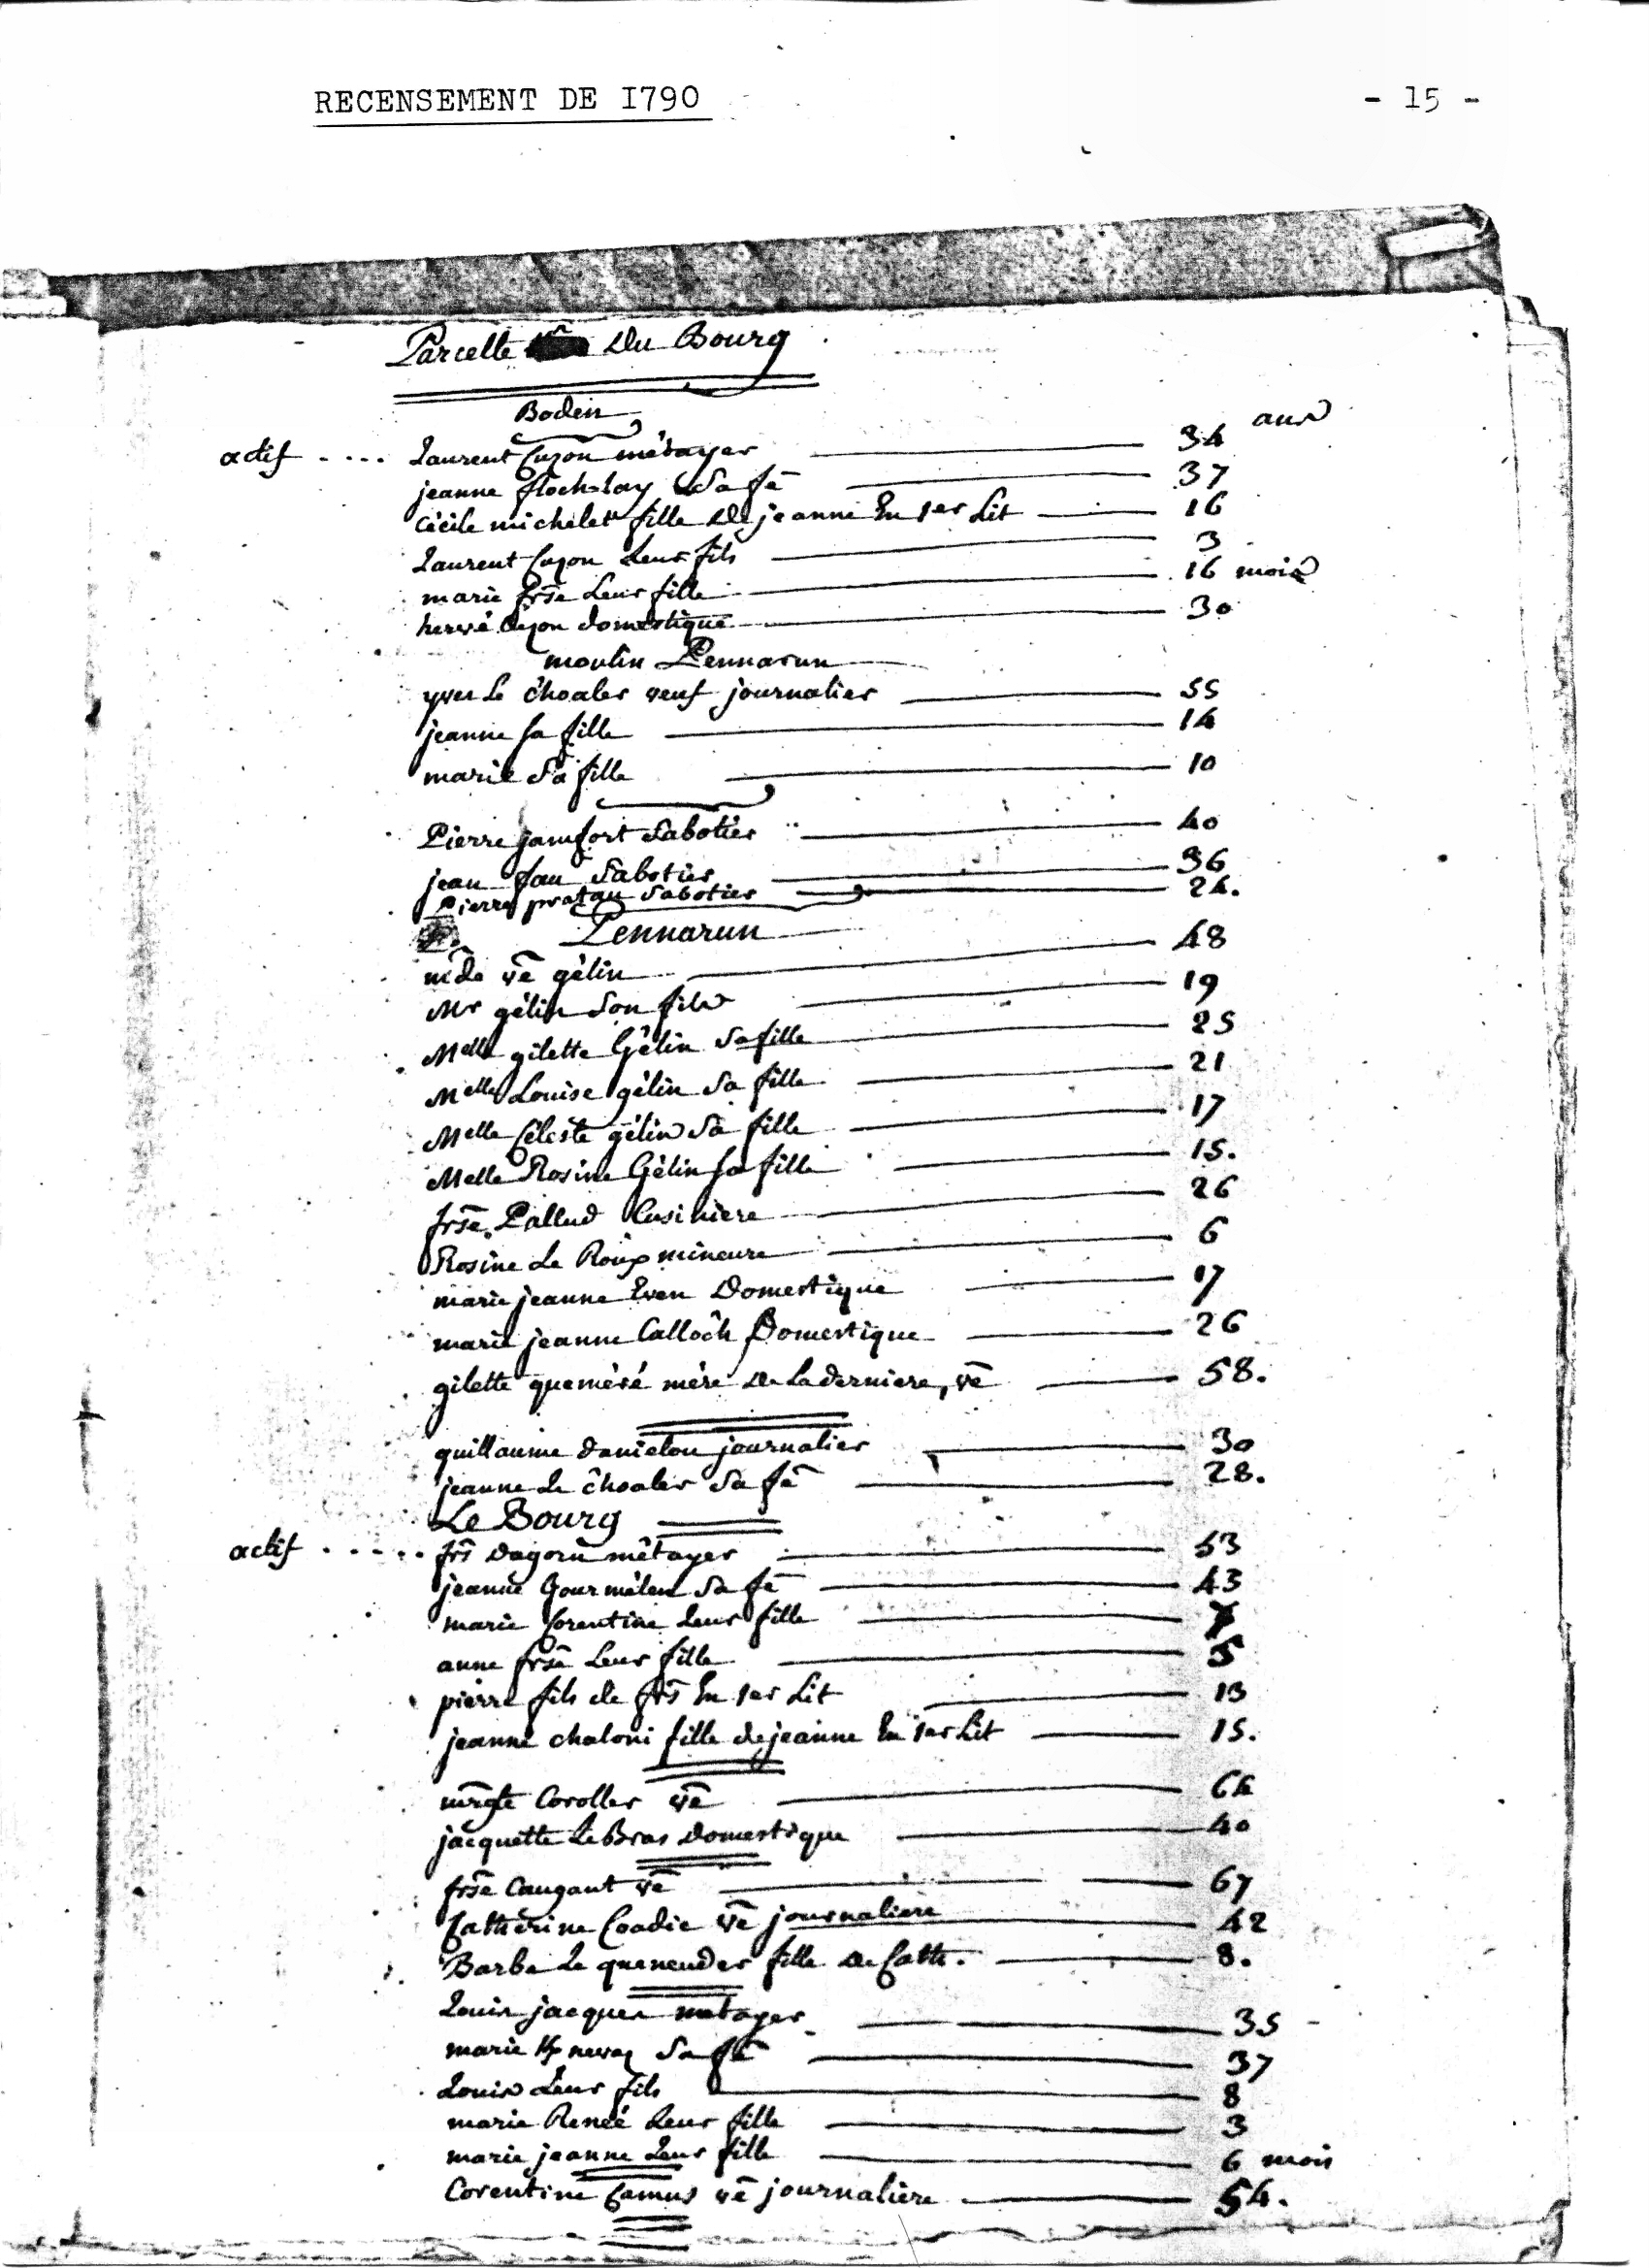 RECENSEMENT DE I790
- 15 -
Parcelle Du Bourg
Boden
ans
actif .... Laurent Cuzon métayer 34
jeanne floch-lay Sa fē 37
Cécile michelet fille De jeanne En 1er Lit 16
Laurent Cuzon Leur fils 3
marie frse Leur fille 16 mois
hervé Cuzon domestique 30
moulin Pennarun
yves Le c'hoaler veuf journalier 55
jeanne sa fille 14
marie Sa fille 10
Pierre jamfort Sabotier 40
jean fau Sabotier 36
Pierre pratau Sabotier 24.
Pennarun
mde vē gélin 48
Mr gélin Son fils 19
Melle gilette Gélin Sa fille 25
Melle Louise gélin Sa fille 21
Melle Céleste gélin Sa fille 17
Melle Rosine Gélin sa fille 15.
frse Pallud Cusiniere 26
Rosine Le Roux mineure 6
marie jeanne Even Domestique 17
marie jeanne Calloc'h Domestique 26
gilette queméré mère De La derniere, vē 58.
guillaume danielou journalier 30
jeanne Le c'hoaler Sa fē 28.
Le Bourg
actif ..... frs Dagorn métayer 53
jeanne Gourmelen Sa fē 43
marie Corentine Leur fille
anne frse Leur fille 5
pierre fils de frs En 1er Lit 13
jeanne chaloni fille de jeanne En 1er Lit 15.
mrgte Coroller vē 64
jacquette Le Bras Domestique 40
frse Caugant vē 67
Catherine Coadic vē journaliere 42
Barbe Le queneuder fille De Cath. 8.
Louis jacques metayer 35
marie Kp nevez Sa fē 37
Louis Leur fils 8
marie Renée Leur fille 3
marie jeanne Leur fille 6 mois
Corentine Camus vē journalière 54.